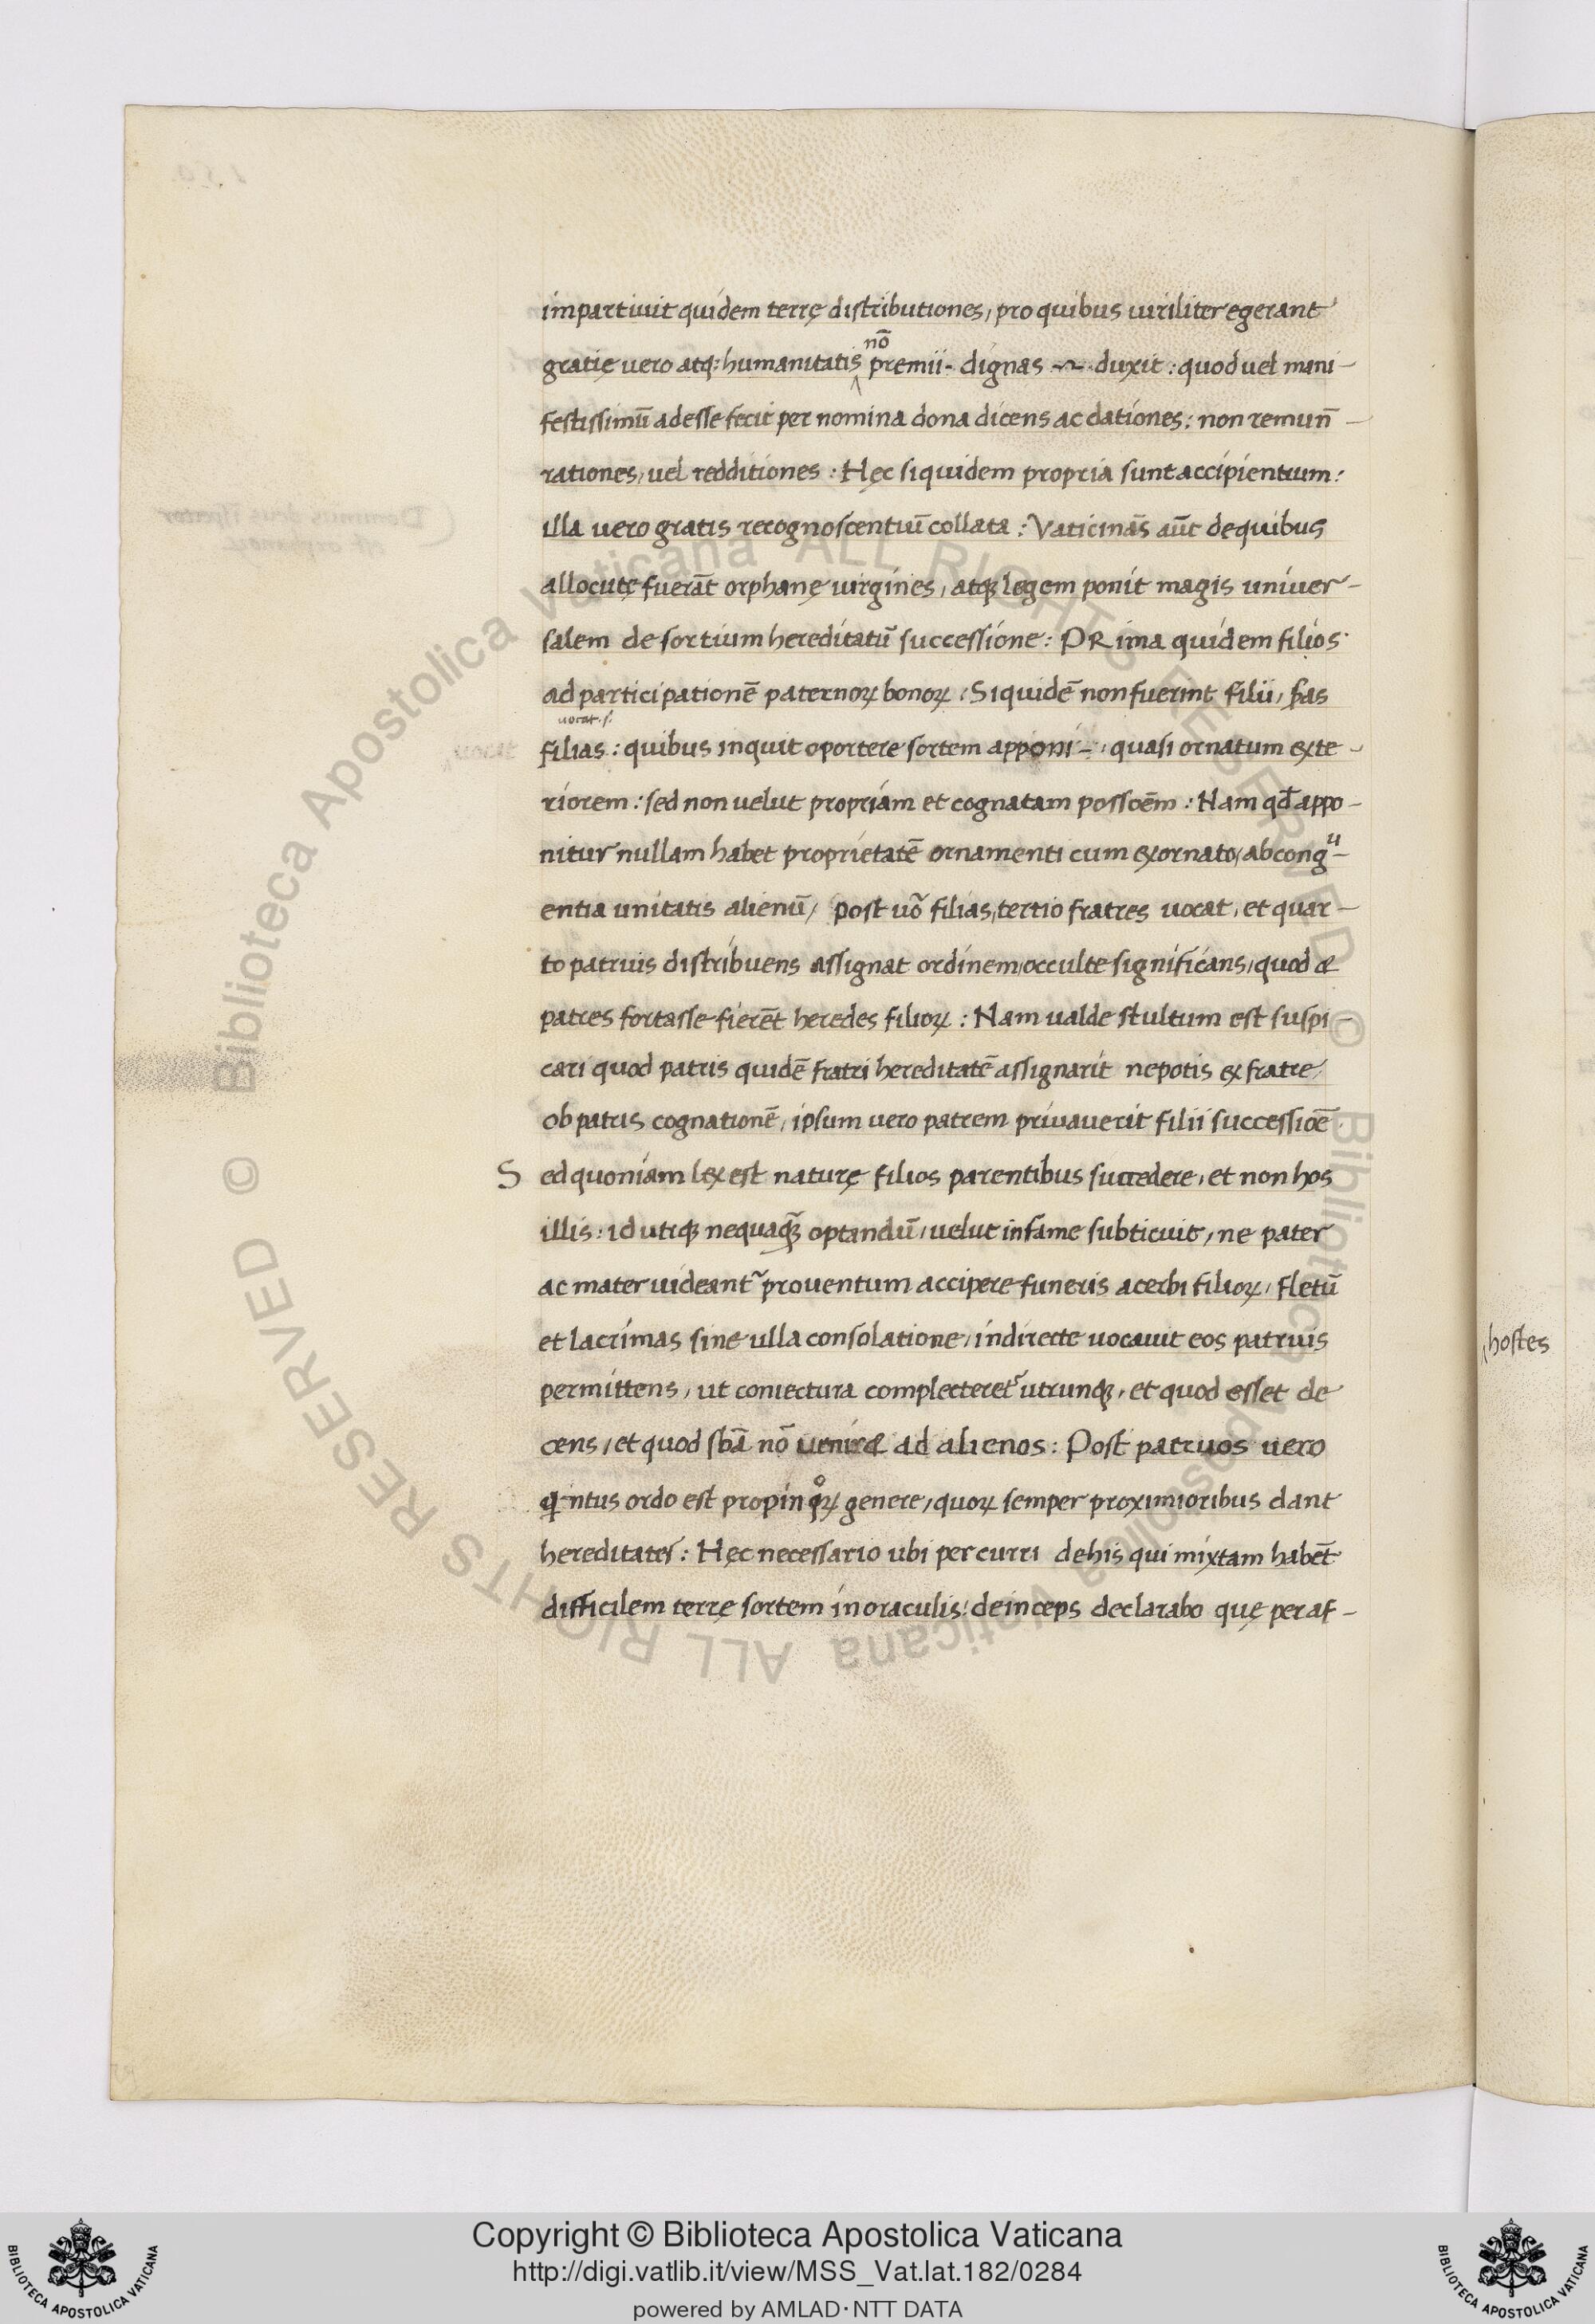 impartiuit quidem terrę distributiones, pro quibus uiriliter egerant
nō
gratię uero atq: humanitatis premii - dignas ~ duxit : quod uel mani-
festissimū adesse fecit per nomina dona dicens ac dationes : non remun̄-
rationes, uel redditiones : Hęc siquidem propria sunt accipientium :
illa vero gratis recognoscentiū collata : Vaticinās aūt de quibus
allocutę fuerāt orphanę uirgines, atqȝ legem ponit magis univer-
salem de sortium hereditatū successione : PRima quidem filios
ad participationē paternoꝝ bonoꝝ : Siquidē non fuerint filii,
uocat. s.
filias : quibus inquit oportere sortem apponi - quasi ornatum exte-
riorem : sed non uelut propriam et cognatam possoēm : Nam qd̄ appo-
nitur nullam habet proprietatē ornamenti cum exornato, ab congu-
entia unitatis alienū, post uō filias, tertio fratres uocat, et quar-
to patruis distribuens assignat ordinem, occulte significans, quod &
patres fortasse fierēt heredes filioꝝ : Nam ualde stultum est suspi-
cari quod patris quidē fratri hereditatē assignarit nepotis ex fratre,
ob patris cognationē, ipsum vero patrem privaverit filii successioē
Sed quoniam lex est naturę filios parentibus succedere, et non hos
illis : id utiqȝ nequaqȝ̄ optandū, uelut infame subticuit, ne pater
ac mater uideant᷑ proventum accipere funeris acerbi filioꝝ, Fletū
et lacrimas sine ulla consolatione, indirecte uocauit eos patruis
permittens, ut coniectura complecteret᷑ utrunqȝ, et quod esset de
cens, et quod sbā nō uenir& ad alienos : Post patruos uero
qintus ordo est propinqoꝝ genere, quoꝝ semper proximioribus dant
hereditates : Hęc necessario ubi percurri de his qui mixtam habēt
difficilem terrę sortem in oraculis : deinceps declarabo quę per af-
hostes
© Biblioteca Apostolica Vaticana ALL RIGHTS RESERVED © Biblioteca Apostolica Vaticana ALL RIGHTS RESERVED
Copyright © Biblioteca Apostolica Vaticana
http://digi.vatlib.it/view/MSS_Vat.lat.182/0284
powered by AMLAD·NTT DATA
BIBLIOTECA APOSTOLICA VATICANA
BIBLIOTECA APOSTOLICA VATICANA